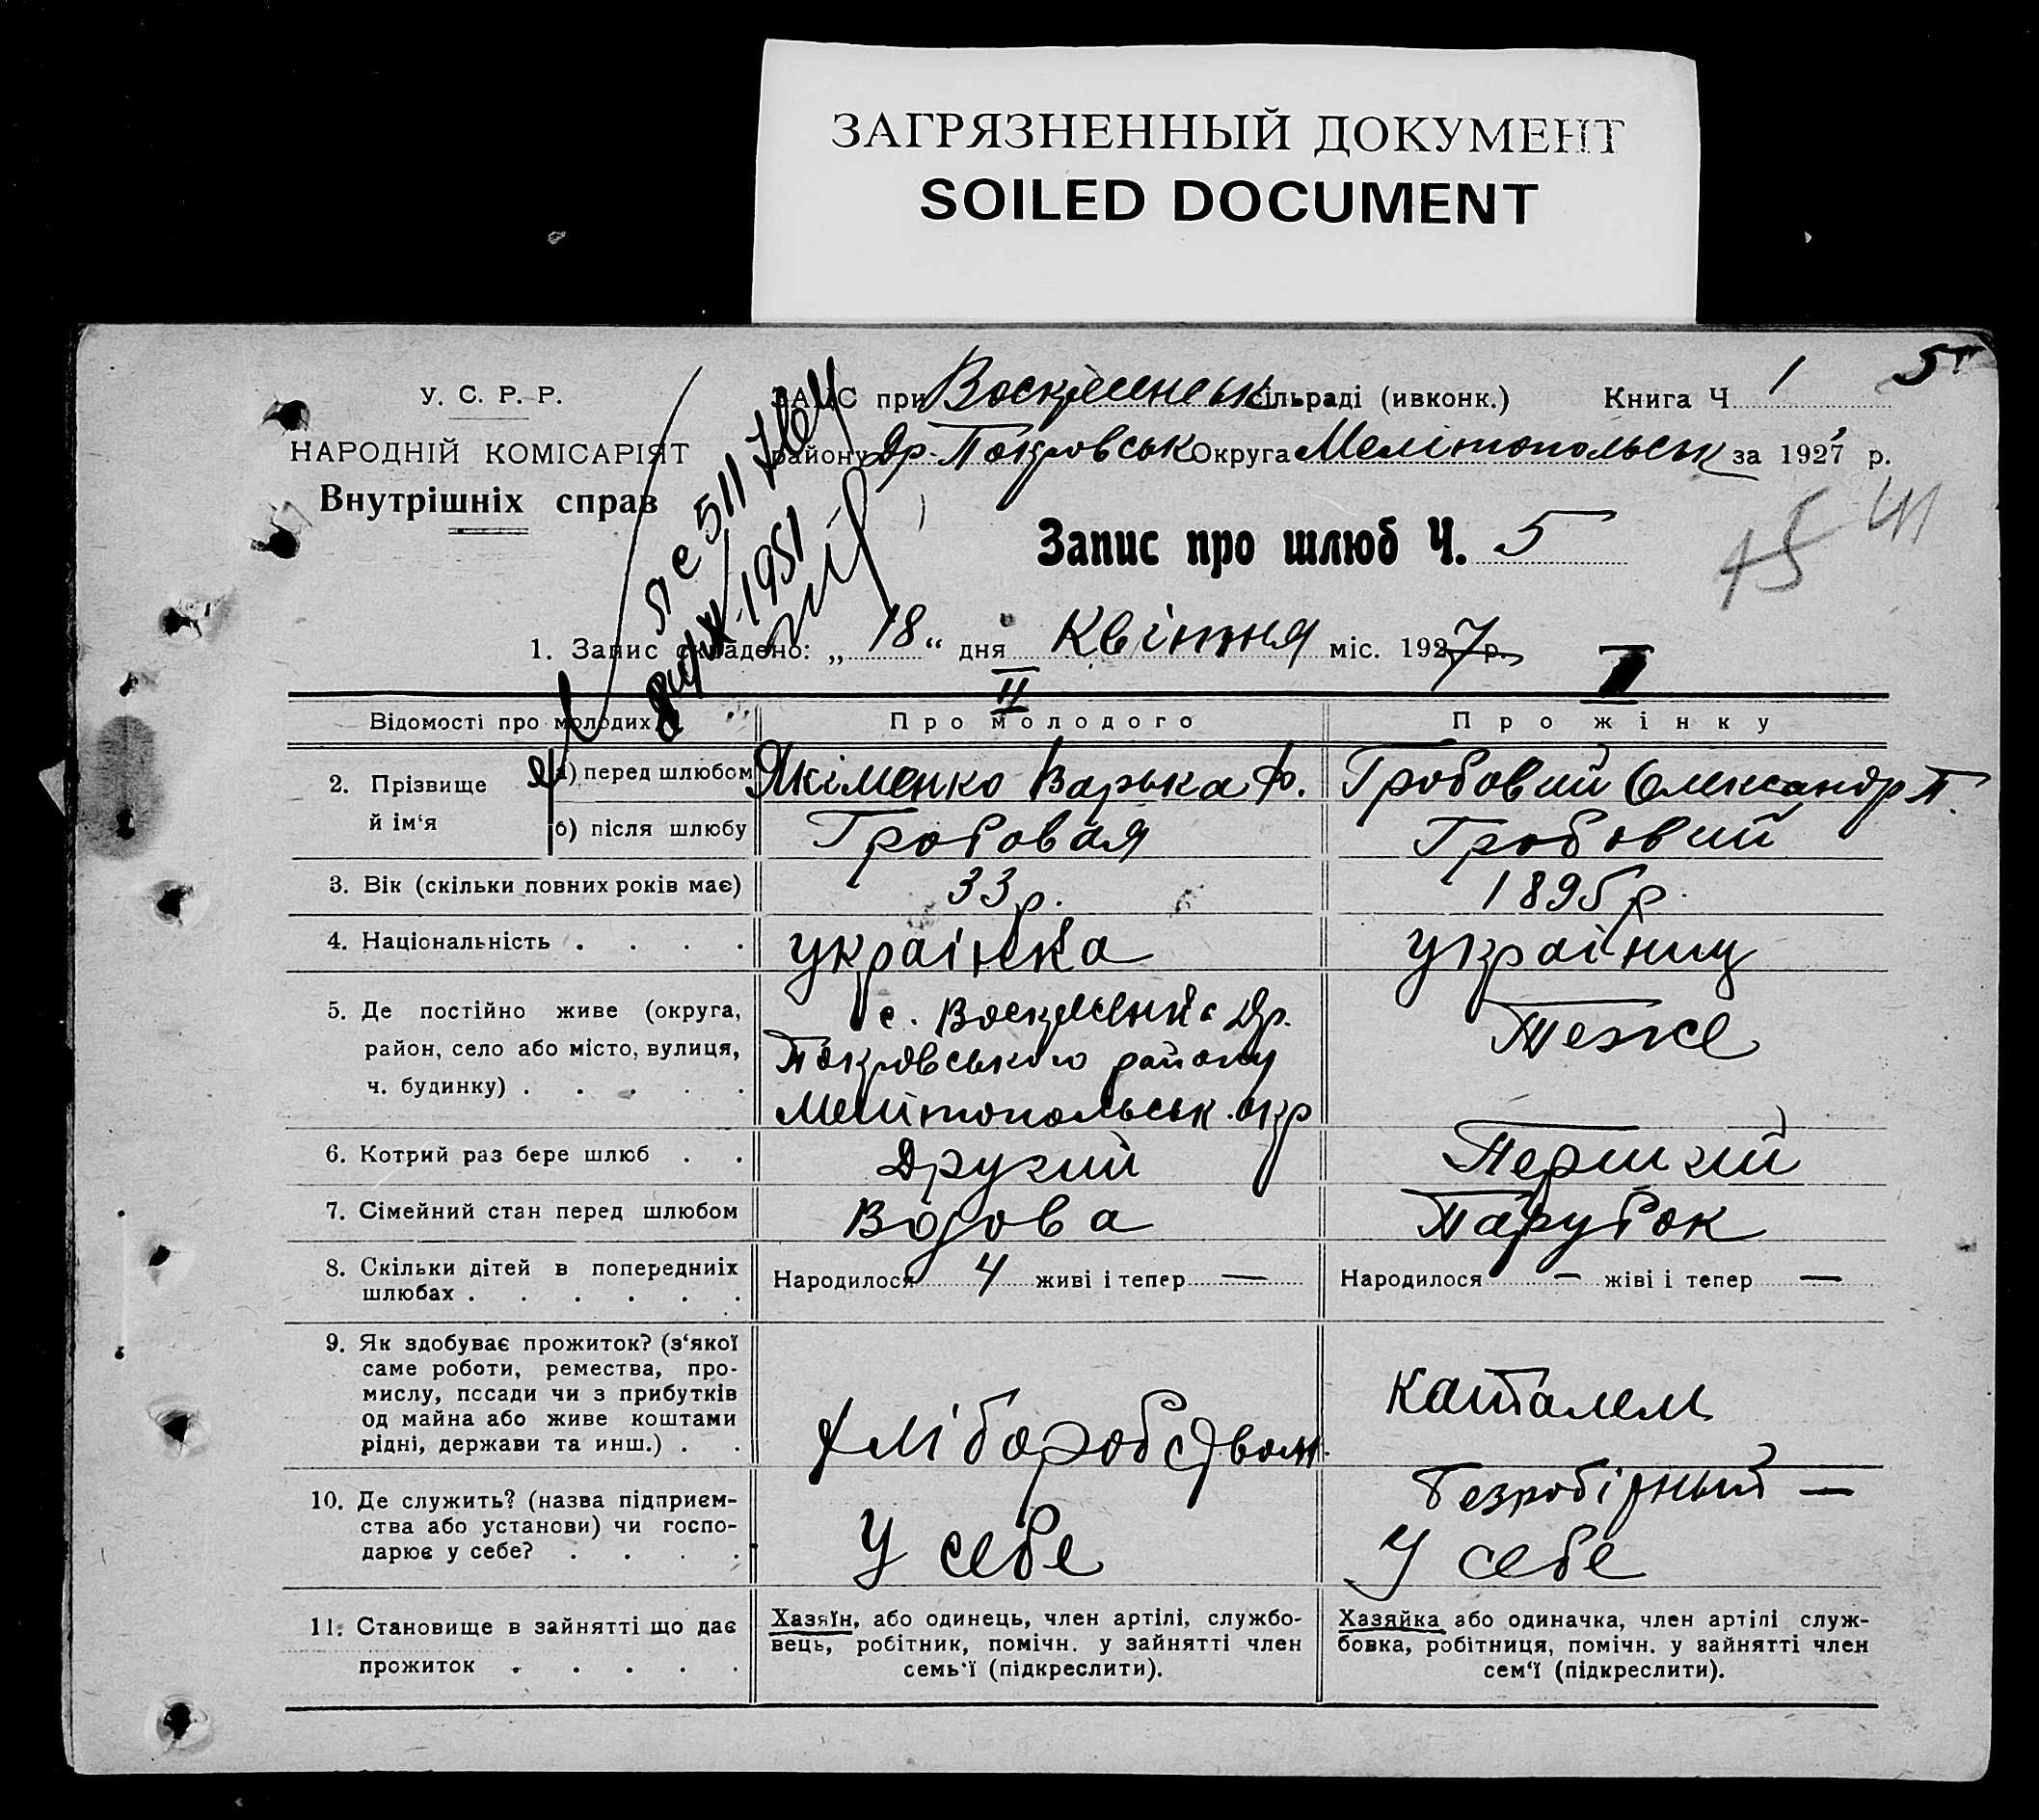 ЗАГРЯЗНЕННЫЙ ДОКУМЕНТ
SOILED DOCUMENT
5
У. С. Р. Р.
НАРОДНІЙ КОМІСАРІЯТ
Внутрішніх справ
ЗАЦС при Воскресенськ сільраді (ивконк.) Книга Ч. 1
району Др-Покровськ Округа Мелітопольськ за 1927 р.
Запис про шлюб Ч. 5
511
1951
1. Запис складено: „ 18 “ дня Квітня міс. 1927 р.
II I
Відомості про молодих Про молодого Про жінку
2. Прізвище й ім‘я
а) перед шлюбом Якіменко Варька Ф. Гробовий Олександр П.
б) після шлюбу Гробовая Гробовий
3. Вік (скільки повних років має) 33 р. 1895 р.
4. Національність . . . . українка українец
5. Де постійно живе (округа, район, село або місто, вулиця, ч. будинку) . . . . .
с. Воскресенка Др.
Покровського району
Мелітопольськ. окр
Теже
6. Котрий раз бере шлюб . . Другий Перший
7. Сімейний стан перед шлюбом Вдова Парубок
8. Скільки дітей в попередниіх шлюбах . . . . . .
Народилося 4 живі і тепер —
Народилося — жіві і тепер —
9. Як здобуває прожиток? (з‘якої
саме роботи, ремества, про-
мислу, пссади чи з прибутків
од майна або живе коштами
рідні, держави та инш.) . .
хліборобством
10. Де служить? (назва підприєм-
ства або установи) чи госпо-
дарює у себе? . . . .
У себе
У себе
11. Становище в зайнятті що дає
прожиток . . . . .
Хазяїн, або одинець, член артілі, службо-
вець, робітник, помічн. у зайнятті член
семь‘ї (підкреслити).
Хазяйка або одиначка, член артілі служ-
бовка, робітниця, помічн. у зайнятті член
сем‘ї (підкреслити).